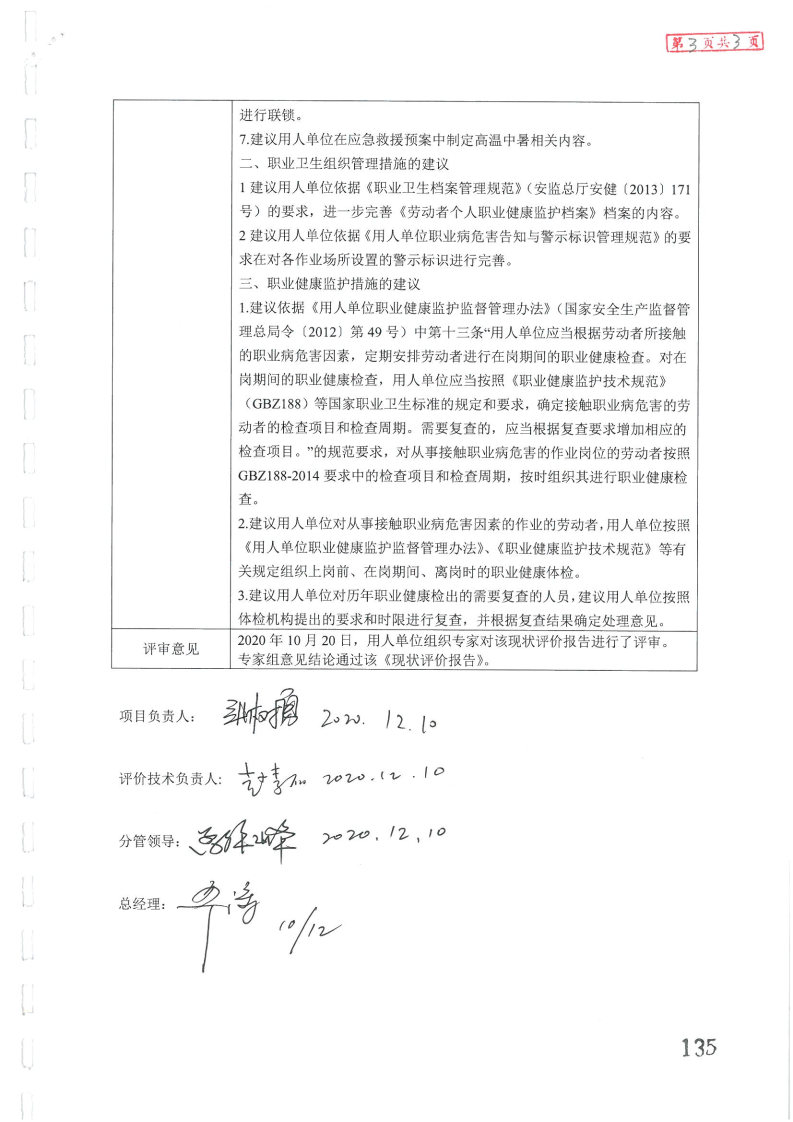 第3页共3页
进行联锁。
7.建议用人单位在应急救援预案中制定高温中暑相关内容。
二、职业卫生组织管理措施的建议
1 建议用人单位依据《职业卫生档案管理规范》（安监总厅安健〔2013〕171
号）的要求，进一步完善《劳动者个人职业健康监护档案》档案的内容。
2 建议用人单位依据《用人单位职业病危害告知与警示标识管理规范》的要
求在对各作业场所设置的警示标识进行完善。
三、职业健康监护措施的建议
1.建议依据《用人单位职业健康监护监督管理办法》（国家安全生产监督管
理总局令〔2012〕第 49 号）中第十三条“用人单位应当根据劳动者所接触
的职业病危害因素，定期安排劳动者进行在岗期间的职业健康检查。对在
岗期间的职业健康检查，用人单位应当按照《职业健康监护技术规范》
（GBZ188）等国家职业卫生标准的规定和要求，确定接触职业病危害的劳
动者的检查项目和检查周期。需要复查的，应当根据复查要求增加相应的
检查项目。”的规范要求，对从事接触职业病危害的作业岗位的劳动者按照
GBZ188-2014 要求中的检查项目和检查周期，按时组织其进行职业健康检
查。
2.建议用人单位对从事接触职业病危害因素的作业的劳动者，用人单位按照
《用人单位职业健康监护监督管理办法》、《职业健康监护技术规范》等有
关规定组织上岗前、在岗期间、离岗时的职业健康体检。
3.建议用人单位对历年职业健康检出的需要复查的人员，建议用人单位按照
体检机构提出的要求和时限进行复查，并根据复查结果确定处理意见。
评审意见
2020 年 10 月 20 日，用人单位组织专家对该现状评价报告进行了评审。
专家组意见结论通过该《现状评价报告》。
项目负责人： 2020. 12.10
评价技术负责人: 2020.12.10
分管领导： 2020.12.10
总经理： 10/12
135